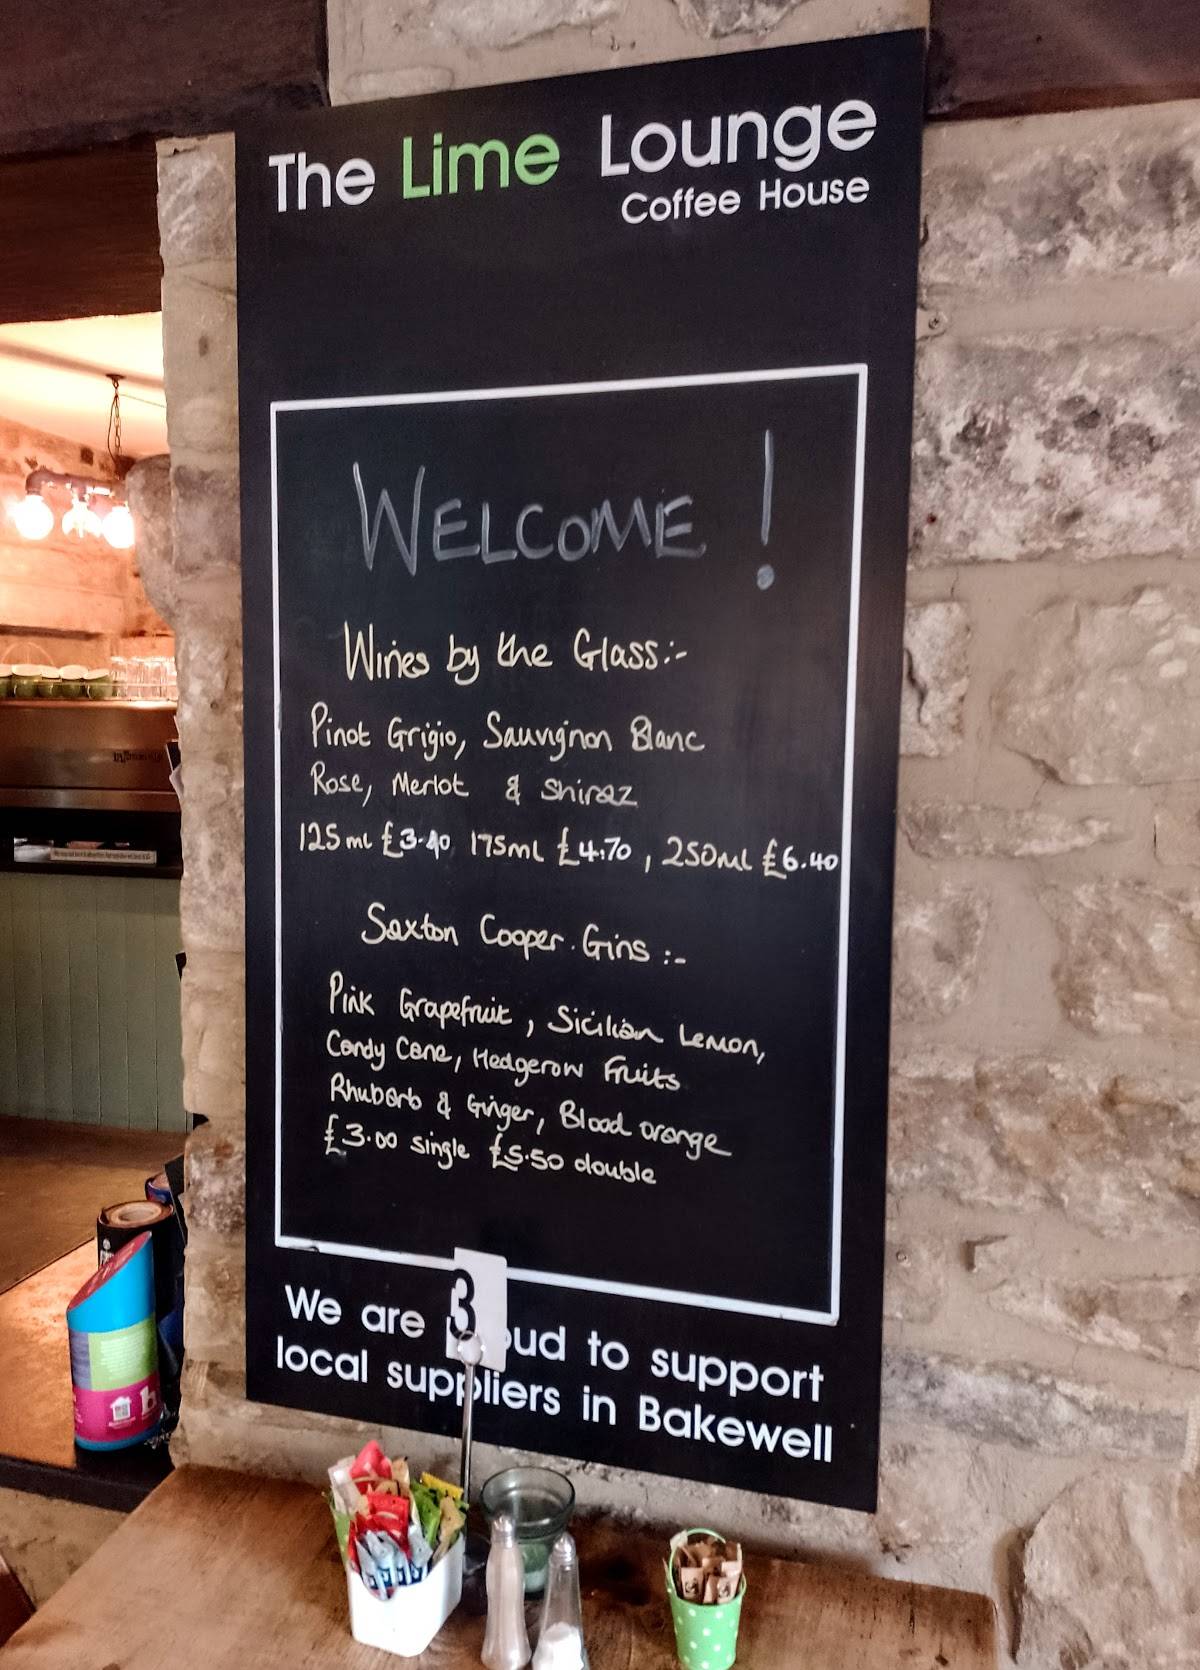 The Lime Lounge
Coffee House
WELCOME !
Wines by the Glass:-
Pinot Grigio, Sauvignon Blanc
Rose, Merlot & Shiraz
125ml £3.40 175ml £4.70, 250ml £6.40
Saxton Cooper. Gins :-
Pink Grapefruit, Sicilian Lemon,
Candy Cane, Hedgerow Fruits
Rhubarb & Ginger, Blood orange
£3.00 single £5.50 double
3
We are oud to support
local suppliers in Bakewell